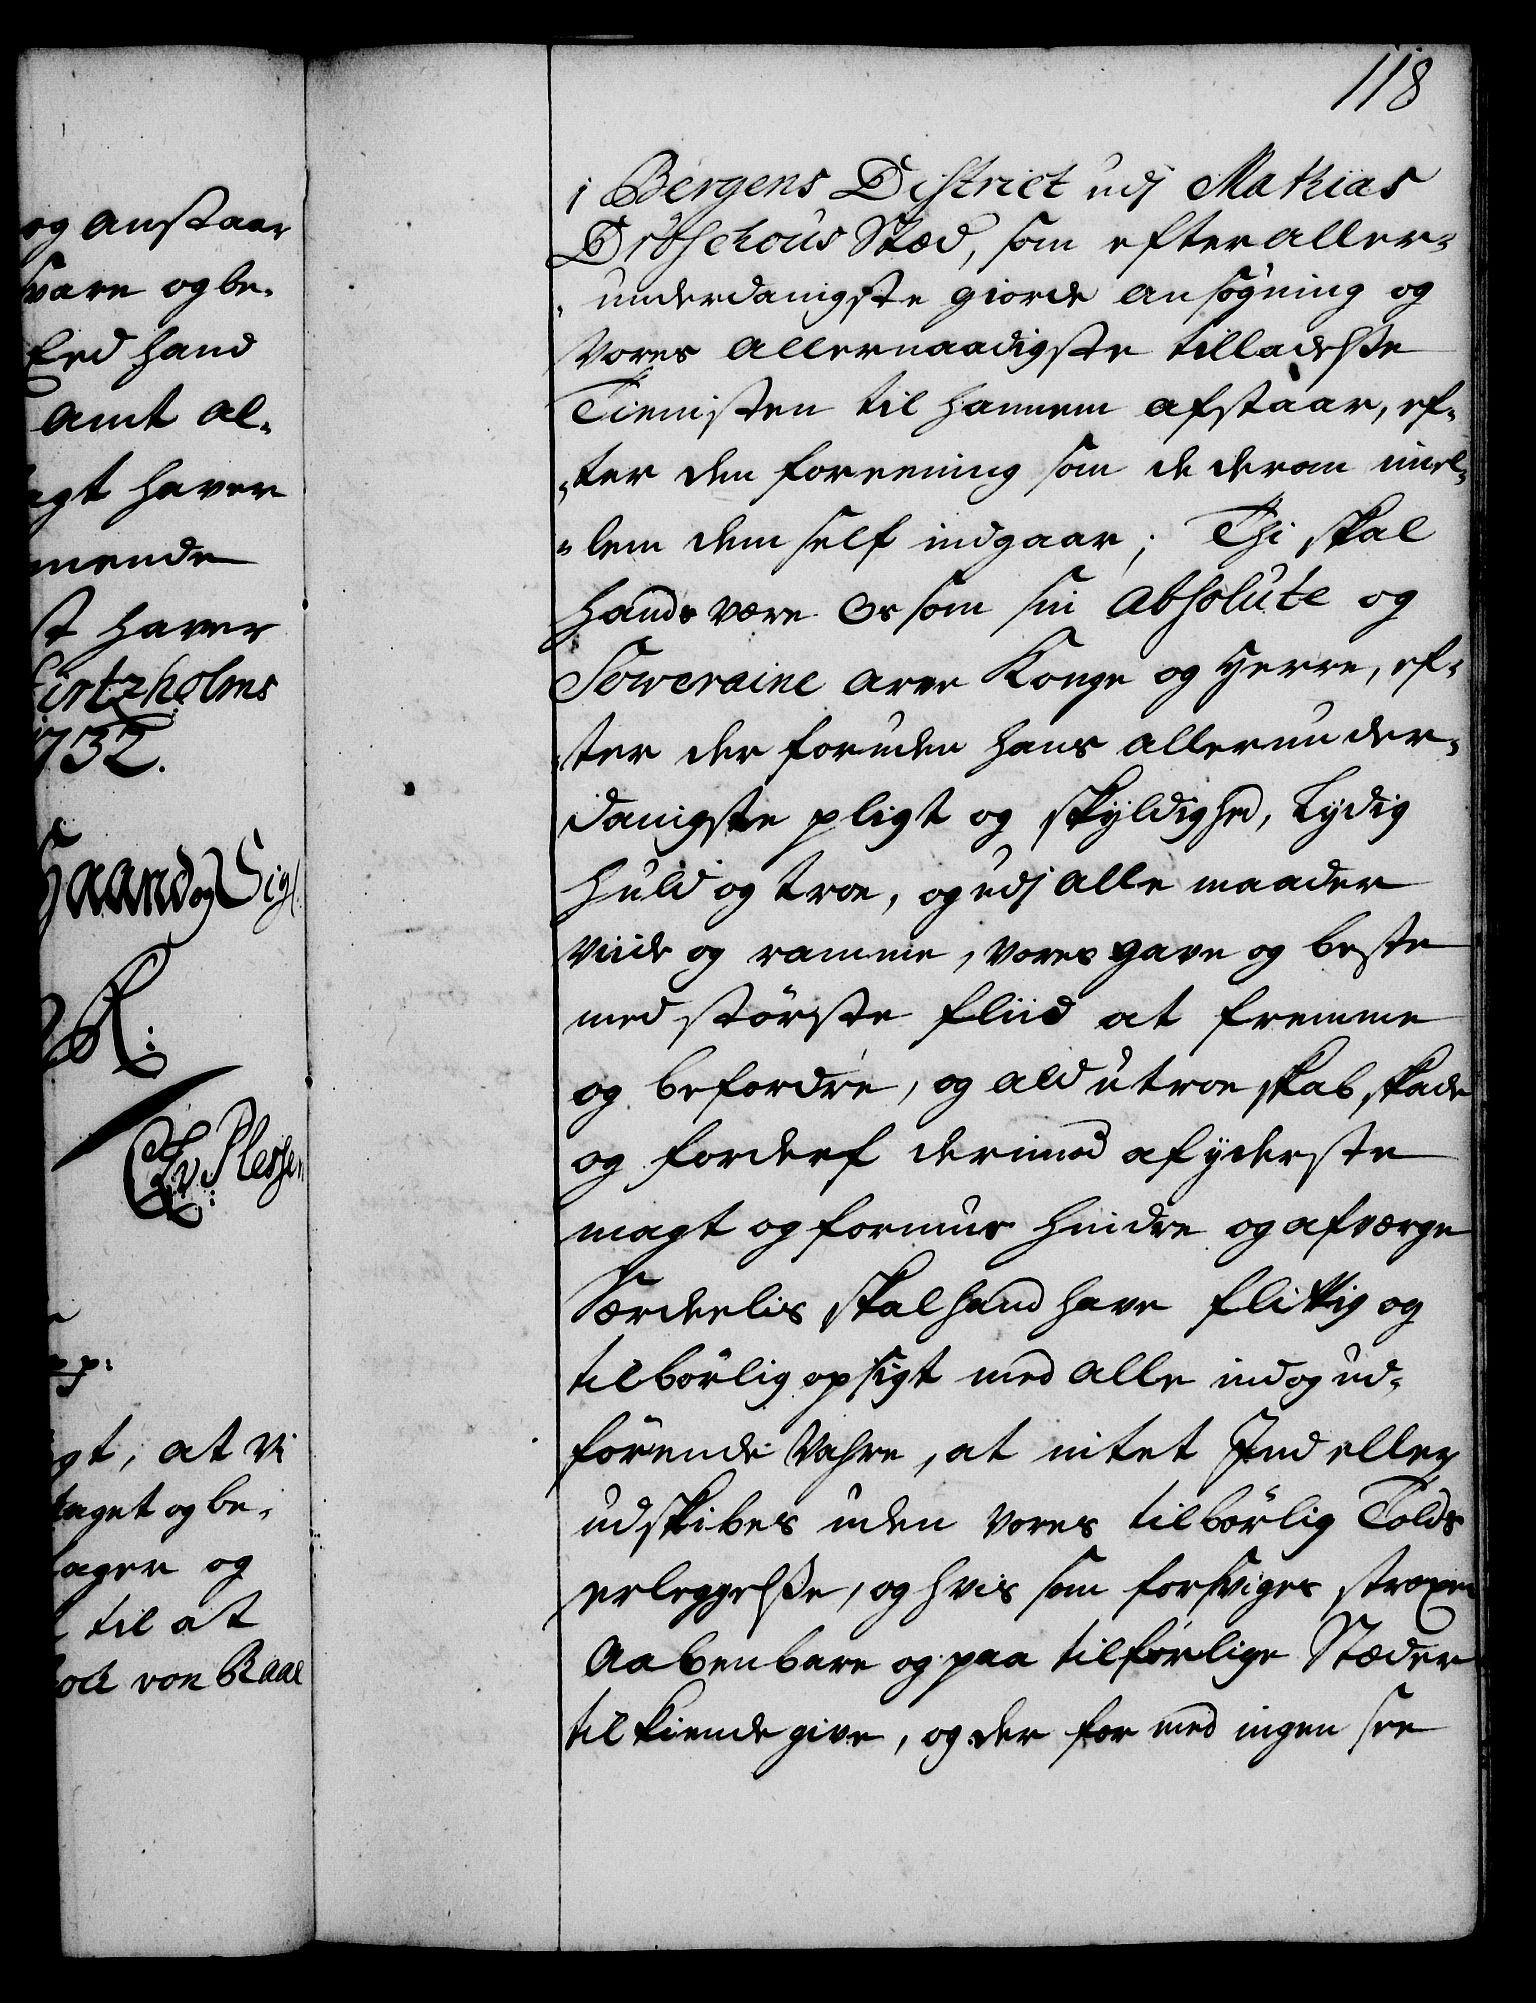 og anstaar
svare og be-
Eed hand
amt al-
agt haver
mende
st haver
irtzholms
1732.
Haand og Sigl.
R:
CAv: Plessen
p:
gt, at vi
taget og be-
tager og
til at
von Raal
118
i Bergens District udj Mathias
Stæd, som efter aller-
underdanigste giorde ansøgning og
Vores allernaadigste tilladelsse
Tienisten til hannem afstaar, ef-
ter den foreening som de derom imel-
lem dem self indgaar; Thi skal
hand være Os som sin absolute og
Soweraine arve Konge og Herre, ef-
ter der foruden hans allerunder-
danigste pligt og skyldighed, Lydig
huld og troe, og udj alle maader
viide og ramme, vores gavn og beste
med største fliid at fremme
og befordre, og ald utroeskab, skade
og forderf derimod af yderste
magt og formue hindre og afværge
Særdeelis skal hand have flittig og
tilbørlig opsigt med alle ind og ud-
førende Vahre, at intet Ind eller
udskibes uden vores tilbørlig Tolds
erleggelsse, og hvis som forsviges straxen
Aabenbare og paa tilførlige Stæder
tilkiende give, og der for med ingen see